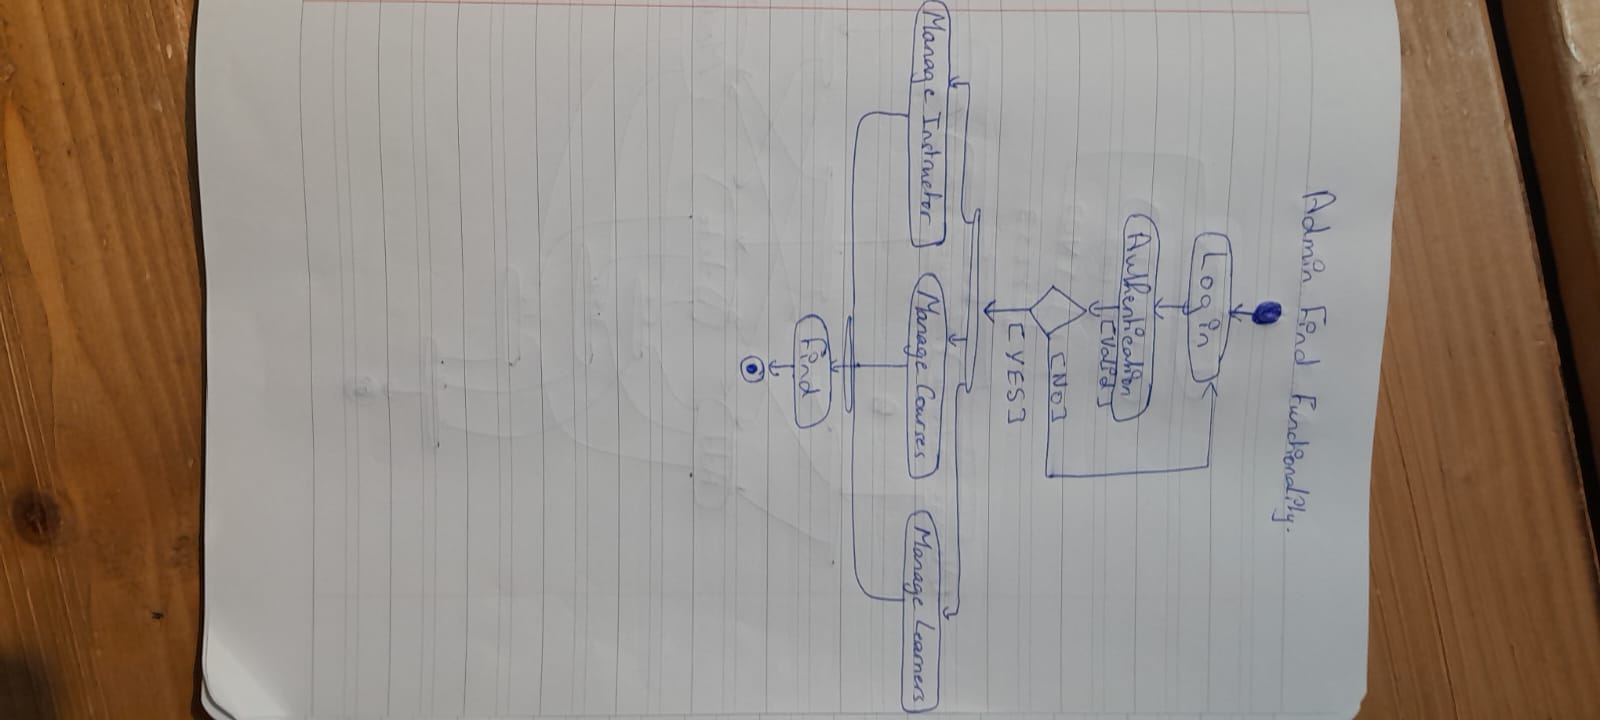 Admin Find Functionality.
Login
Authentication
[Valid]
[NO]
[YES]
Manage Instructor Manage Courses Manage Learners
Find